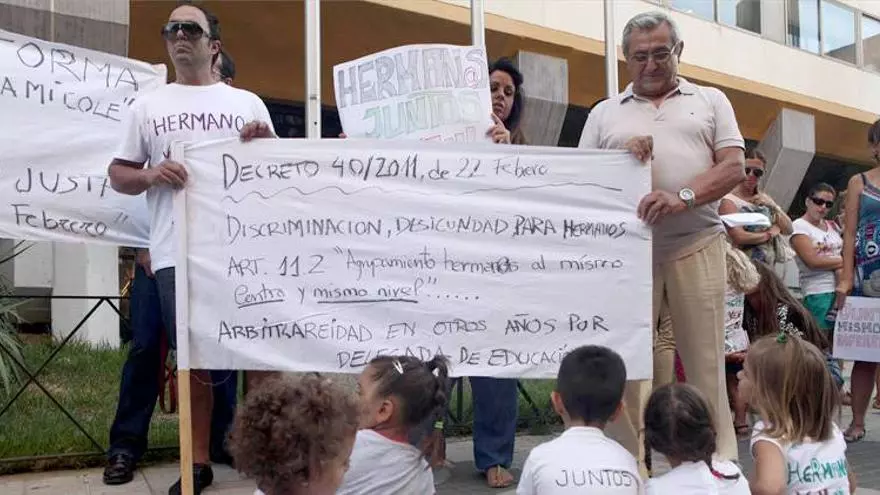 ORMA
AMICOLE"
JUSTA
Febrero"
HERMANO
HERMAN@S
JUNTOS
DECRETO 40/2011, de 22 Febero
DISCRIMINACION, DESICUNDAD PARA HERMANOS
ART. 11.2 "Agrupamiento hermanos al mismo
Centro y mismo nivel"......
ARBITRAREIDAD EN OTROS AÑOS POR
DELEGADA DE EDUCACIÓN
MISMO
JUNTOS
HERMAN